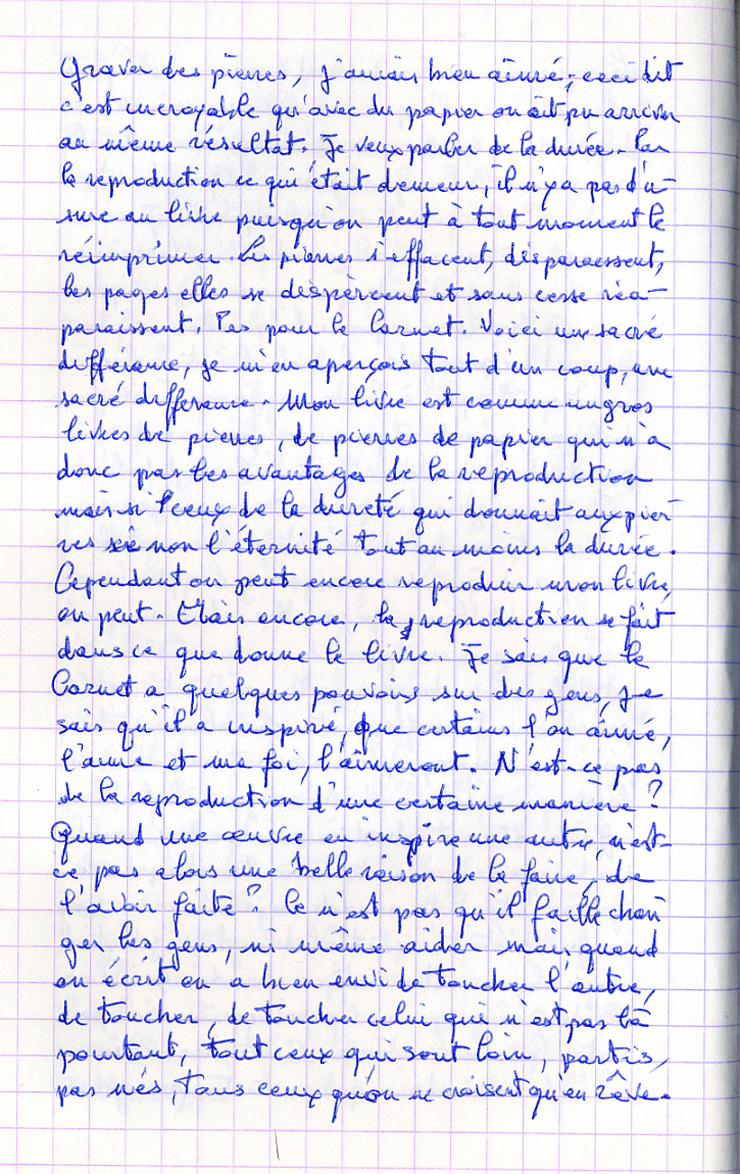 Graver des pierres, j'aurais bien aimé; ceci dit
c'est incroyable qu'avec du papier on ait pu arriver
au même résultat. Je veux parler de la durée. Par
la reproduction ce qui était demeure, il n'y a pas d'u-
sure au livre puisqu'on peut à tout moment le
réimprimer. Les pierres s'effacent, disparaessent,
les pages elles se dispercent et sans cesse réa-
paraissent. Pas pour le Carnet. Voici une sacré
différence, je m'en aperçois tout d'un coup, une
sacré différence. Mon livre est comme un gros
livres de pierres, de pierres de papier qui n'a
donc pas les avantages de la reproduction
mais si ceux de la dureté qui donnait aux pier-
res si non l'éternité tout au moins la durée.
Cependant on peut encore reproduire mon livre,
on peut. Mais encore, la reproduction se fait
dans ce que donne le livre. Je sais que le
Carnet a quelques pouvoirs sur des gens, je
sais qu'il a inspiré, que certains l'on aimé,
l'aime et ma foi, l'aimeront. N'est-ce pas
de la reproduction d'une certaine manière?
Quand une œuvre en inspire une autre, n'est-
ce pas alors une belle raison de la faire, de
l'avoir faite? Ce n'est pas qu'il faille chan
ger les gens, ni même aider mais quand
on écrit on a bien envi de toucher l'autre,
de toucher, de toucher celui qui n'est pas là
pourtant, tout ceux qui sont loin, partis,
pas nés, tous ceux qu'on ne croisent qu'en rêve.